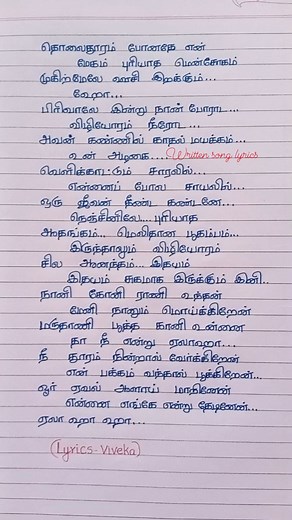 தொலைதூரம் போனதே என்
மேகம் புரியாத மென்சோகம்
முகிற்மேலே ஊசி இறக்கும்...
ஹோ...
பிரிவாலே இன்று நான் போராட...
விழியோரம் நீரோட...
அவன் கண்ணில் காதல் மயக்கம்...
உன் அழகை.... Written song lyrics
வெளிக்காட்டும் சாரலில்...
என்னைப் போல சாயலில்...
ஒரு ஜீவன் நீண்ட கண்டனே...
நெஞ்சினிலே... புரியாத
ஆதங்கம்... மெலிதான பூகம்பம்...
இருந்தாலும் விழியோரம்
சில ஆனந்தம்... இதயம்
இதயம் சுகமாக இருக்கும் இனி..
நானி கோனி ராணி உந்தன்
மேனி நானும் மொய்க்கிறேன்
மருதாணி பூத்த கானி உன்னை
தா நீ என்று ஏலாஹா...
நீ தூரம் நின்றால் வேர்க்கிறேன்
என் பக்கம் வந்தால் பூக்கிறேன்...
ஓர் ஏவல் ஆளாய் மாறினேன்
என்னை எங்கே என்று தேடினேன்...
ஏலா ஹா ஹா...
(Lyrics - Viveka)